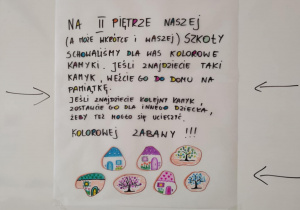 NA II PIĘTRZE NASZEJ
(A MOŻE WKRÓTCE I WASZEJ) SZKOŁY
SCHOWALIŚMY DLA WAS KOLOROWE
KAMYKI. JEŚLI ZNAJDZIECIE TAKI
KAMYK, WEŹCIE GO DO DOMU NA
PAMIĄTKĘ.
JEŚLI ZNAJDZIECIE KOLEJNY KAMYK,
ZOSTAWCIE GO DLA INNEGO DZIECKA,
ŻEBY TEŻ MOGŁO SIĘ UCIESZYĆ.
KOLOROWEJ ZABAWY !!!